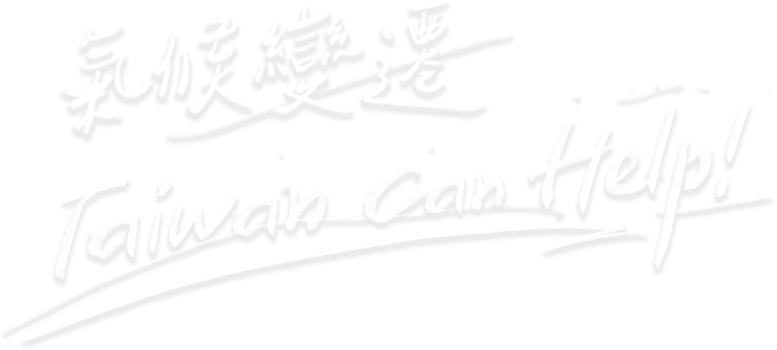 氣候變遷
Taiwan Can Help!